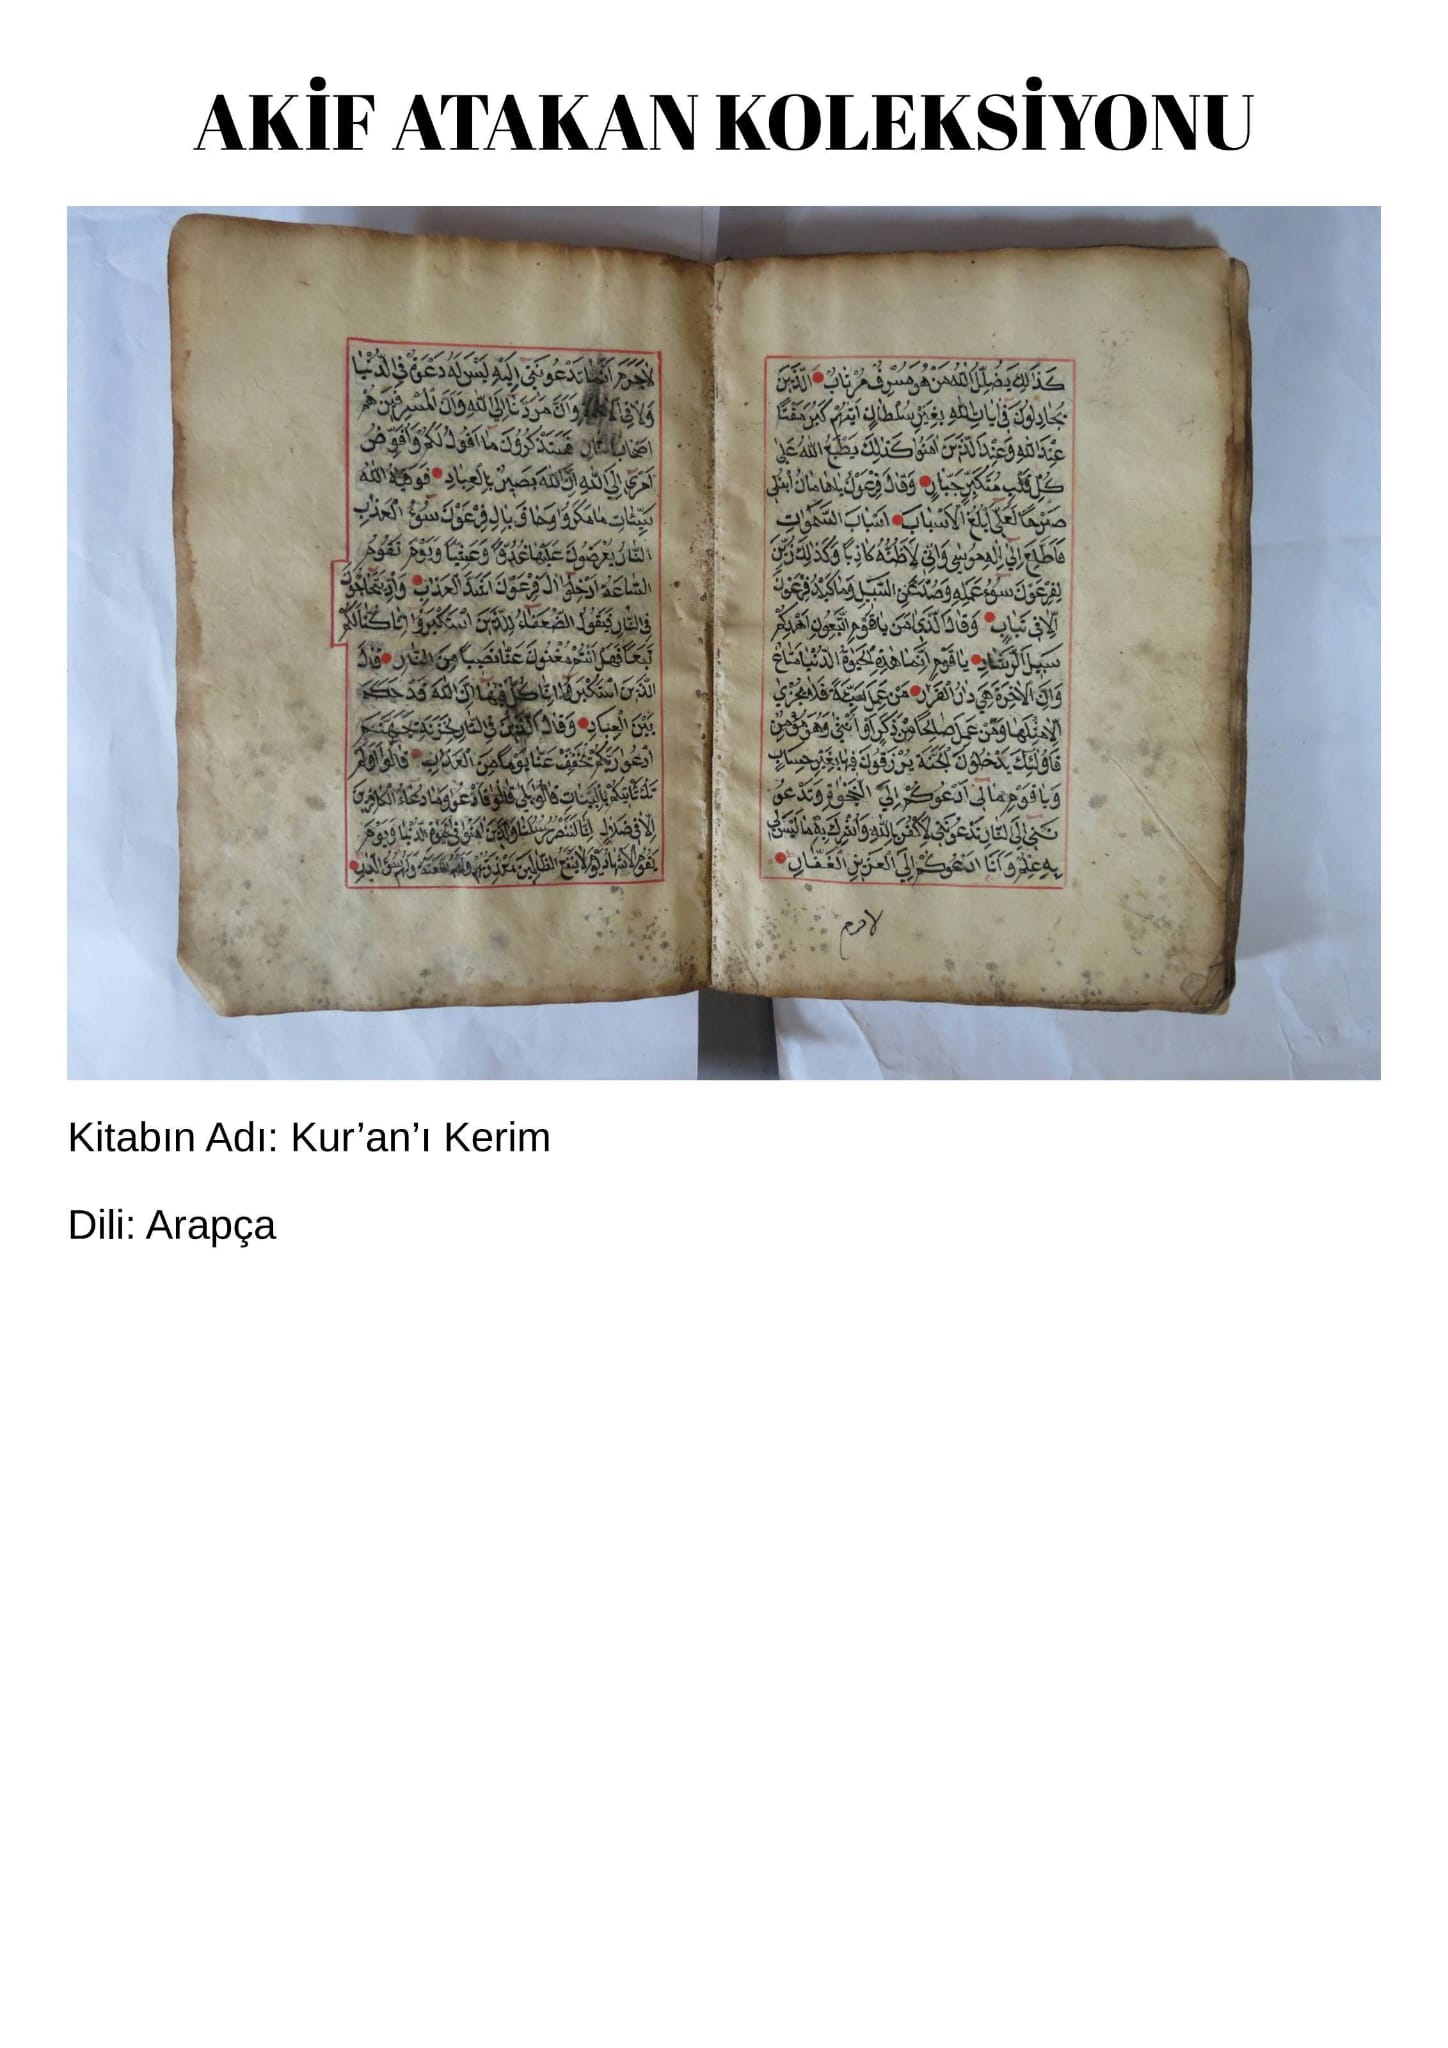 AKİF ATAKAN KOLEKSİYONU
كَذٰلِكَ يُضِلُّ اللّٰهُ مَنْ هُوَ مُسْرِفٌ مُرْتَابٌ الَّذِينَ
يُجَادِلُونَ فِي اٰيَاتِ اللّٰهِ بِغَيْرِ سُلْطَانٍ اَتٰيهُمْ كَبُرَ مَقْتًا
عِنْدَ اللّٰهِ وَعِنْدَ الَّذِينَ اٰمَنُوا كَذٰلِكَ يَطْبَعُ اللّٰهُ عَلٰى
كُلِّ قَلْبِ مُتَكَبِّرٍ جَبَّارٍ وَقَالَ فِرْعَوْنُ يَاهَامَانُ ابْنِ لِى
صَرْحًا لَعَلِّى اَبْلُغُ الْاَسْبَابَ اَسْبَابَ السَّمٰوَاتِ
فَاَطَّلِعَ اِلٰى اِلٰهِ مُوسٰى وَاِنِّى لَاَظُنُّهُ كَاذِبًا وَكَذٰلِكَ زُيِّنَ
لِفِرْعَوْنَ سُوءُ عَمَلِهِ وَصُدَّ عَنِ السَّبِيلِ وَمَا كَيْدُ فِرْعَوْنَ
اِلَّا فِى تَبَابٍ وَقَالَ الَّذِى اٰمَنَ يَاقَوْمِ اتَّبِعُونِ اَهْدِكُمْ
سَبِيلَ الرَّشَادِ يَاقَوْمِ اِنَّمَا هٰذِهِ الْحَيٰوةُ الدُّنْيَا مَتَاعٌ
وَاِنَّ الْاٰخِرَةَ هِيَ دَارُ الْقَرَارِ مَنْ عَمِلَ سَيِّئَةً فَلَا يُجْزٰى
اِلَّا مِثْلَهَا وَمَنْ عَمِلَ صَالِحًا مِنْ ذَكَرٍ اَوْ اُنْثٰى وَهُوَ مُؤْمِنٌ
فَاُولٰئِكَ يَدْخُلُونَ الْجَنَّةَ يُرْزَقُونَ فِيهَا بِغَيْرِ حِسَابٍ
وَيَاقَوْمِ مَا لِى اَدْعُوكُمْ اِلَى النَّجٰوةِ وَتَدْعُو
نَنِى اِلَى النَّارِ تَدْعُونَنِى لِاَكْفُرَ بِاللّٰهِ وَاُشْرِكَ بِهِ مَا لَيْسَ لِى
بِهِ عِلْمٌ وَاَنَا اَدْعُوكُمْ اِلَى الْعَزِيزِ الْغَفَّارِ
لاجرم
لَاجَرَمَ اَنَّمَا تَدْعُونَنِى اِلَيْهِ لَيْسَ لَهُ دَعْوَةٌ فِى الدُّنْيَا
وَلَا فِى وَاَنَّ مَرَدَّنَا اِلَى اللّٰهِ وَاَنَّ الْمُسْرِفِينَ هُمْ
اَصْحَابُ النَّارِ فَسَتَذْكُرُونَ مَا اَقُولُ لَكُمْ وَاُفَوِّضُ
اَمْرِى اِلَى اللّٰهِ اِنَّ اللّٰهَ بَصِيرٌ بِالْعِبَادِ فَوَقٰيهُ اللّٰهُ
سَيِّئَاتِ مَا مَكَرُوا وَحَاقَ بِاٰلِ فِرْعَوْنَ سُوءُ الْعَذَابِ
النَّارُ يُعْرَضُونَ عَلَيْهَا غُدُوًّا وَعَشِيًّا وَيَوْمَ تَقُومُ
السَّاعَةُ اَدْخِلُوا اٰلَ فِرْعَوْنَ اَشَدَّ الْعَذَابِ وَاِذْ يَتَحَاجُّونَ
فِى النَّارِ فَيَقُولُ الضُّعَفَاءُ لِلَّذِينَ اسْتَكْبَرُوا اِنَّا كُنَّا لَكُمْ
تَبَعًا فَهَلْ اَنْتُمْ مُغْنُونَ عَنَّا نَصِيبًا مِنَ النَّارِ قَالَ
الَّذِينَ اسْتَكْبَرُوا اِنَّا كُلٌّ فِيهَا اِنَّ اللّٰهَ قَدْ حَكَمَ
بَيْنَ الْعِبَادِ وَقَالَ الَّذِينَ فِى النَّارِ لِخَزَنَةِ جَهَنَّمَ
ادْعُوا رَبَّكُمْ يُخَفِّفْ عَنَّا يَوْمًا مِنَ الْعَذَابِ قَالُوا اَوَلَمْ
تَكُ تَاْتِيكُمْ بِالْبَيِّنَاتِ قَالُوا بَلٰى قَالُوا فَادْعُوا وَمَا دُعَاءُ الْكَافِرِينَ
اِلَّا فِى ضَلَالٍ اِنَّا لَنَنْصُرُ رُسُلَنَا وَالَّذِينَ اٰمَنُوا فِى الْحَيٰوةِ الدُّنْيَا وَيَوْمَ
يَقُومُ الْاَشْهَادُ يَوْمَ لَا يَنْفَعُ الظَّالِمِينَ مَعْذِرَتُهُمْ وَلَهُمُ اللَّعْنَةُ وَلَهُمْ سُوءُ الدَّارِ
Kitabın Adı: Kur’an’ı Kerim
Dili: Arapça